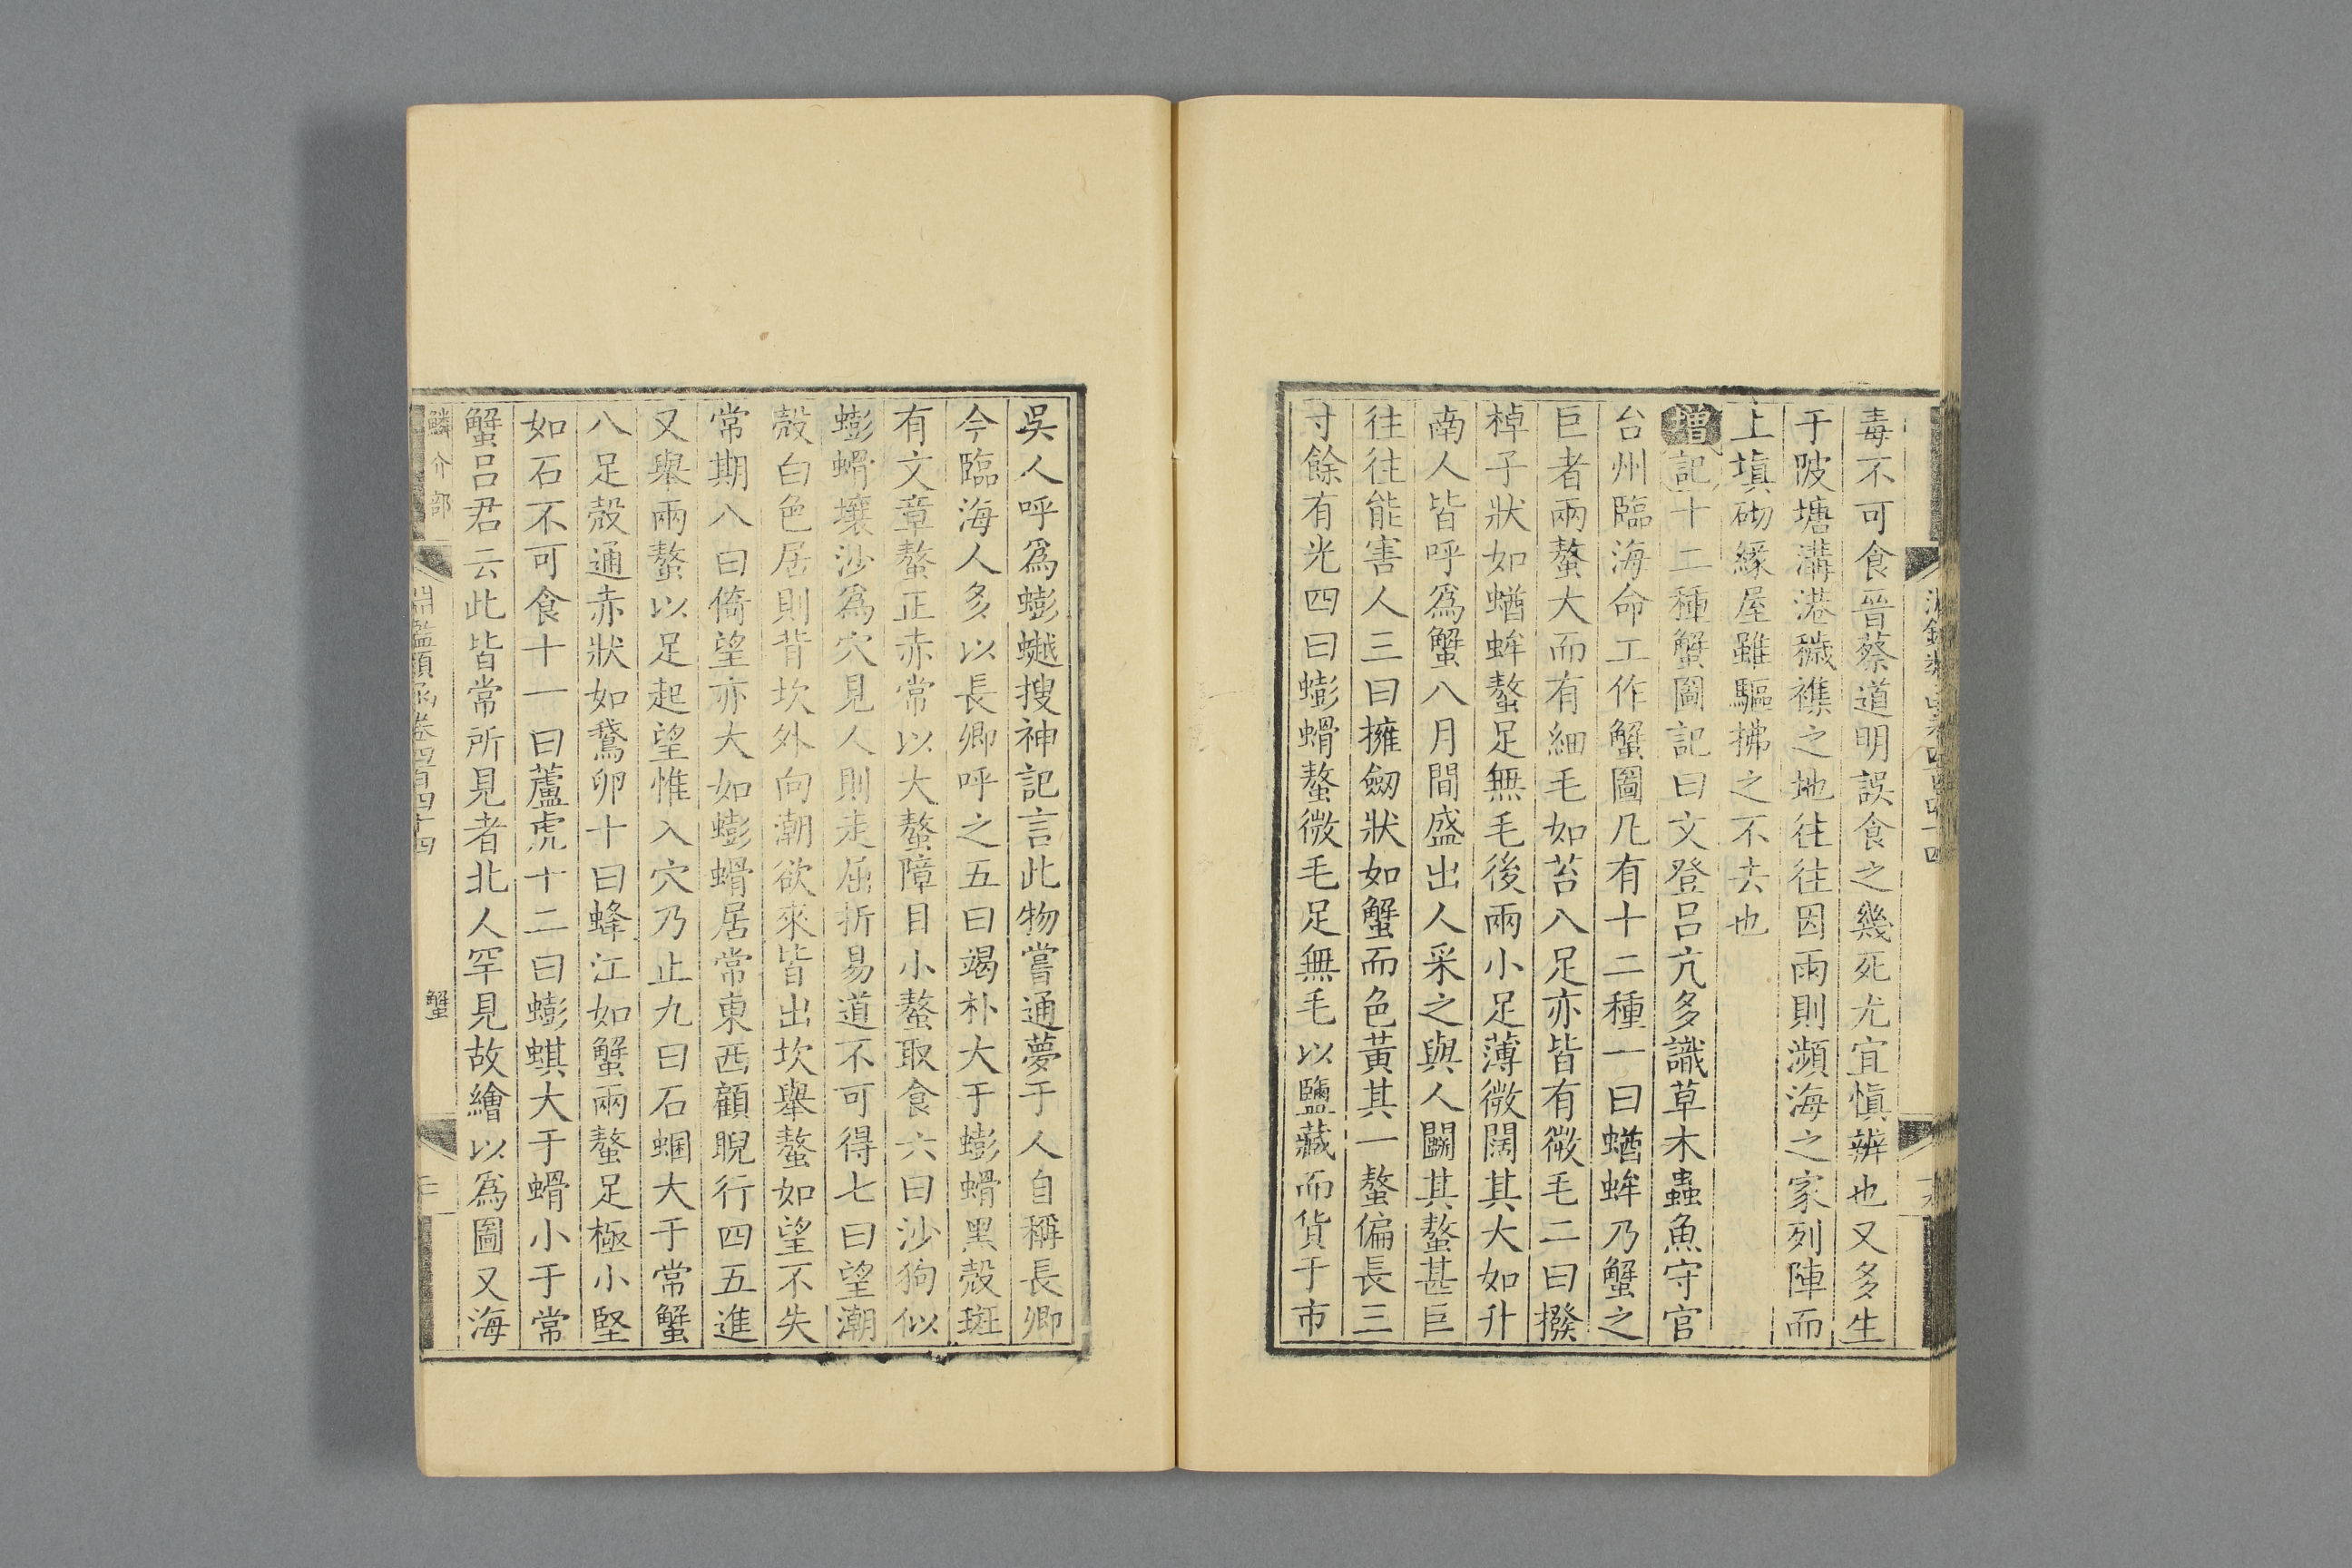 毒不可食晉蔡道明誤食之幾死尤宜慎辨也又多生
于陂塘溝港穢襍之地往往因雨則瀕海之家列陣而
上塡砌緣屋雖驅拂之不去也
增記十二種蟹圖記曰文登呂亢多識草木蟲魚守官
台州臨海命工作蟹圖凡有十二種一曰蝤蛑乃蟹之
巨者兩螯大而有細毛如苔八足亦皆有微毛二曰撥
棹子狀如蝤蛑螯足無毛後兩小足薄微闊其大如升
南人皆呼爲蟹八月間盛出人采之與人鬭其螯甚巨
往往能害人三曰擁劒狀如蟹而色黃其一螯偏長三
寸餘有光四曰蟛蝟螯微毛足無毛以鹽藏而貨于市
吳人呼爲蟛蟛搜神記言此物嘗通夢于人自稱長卿
今臨海人多以長卿呼之五曰竭朴大于蟛蝟黑殼斑
有文章螯正赤常以大螯障目小螯取食六曰沙狗似
蟛蝟壤沙爲穴見人則走屈折易道不可得七曰望潮
殼白色居則背坎外向潮欲來皆出坎舉螯如望不失
常期八曰倚望亦大如蟛蝟居常東西顧睨行四五進
又舉兩螯以足起望惟入穴乃止九曰石蜠大于常蟹
八足殼通赤狀如鵞卵十曰蜂江如蟹兩螯足極小堅
如石不可食十一曰蘆虎十二曰蟛蜞大于蝟小于常
蟹呂君云此皆常所見者北人罕見故繪以爲圖又海
鱗介部
淵鑑類函卷四百四十四
蟹